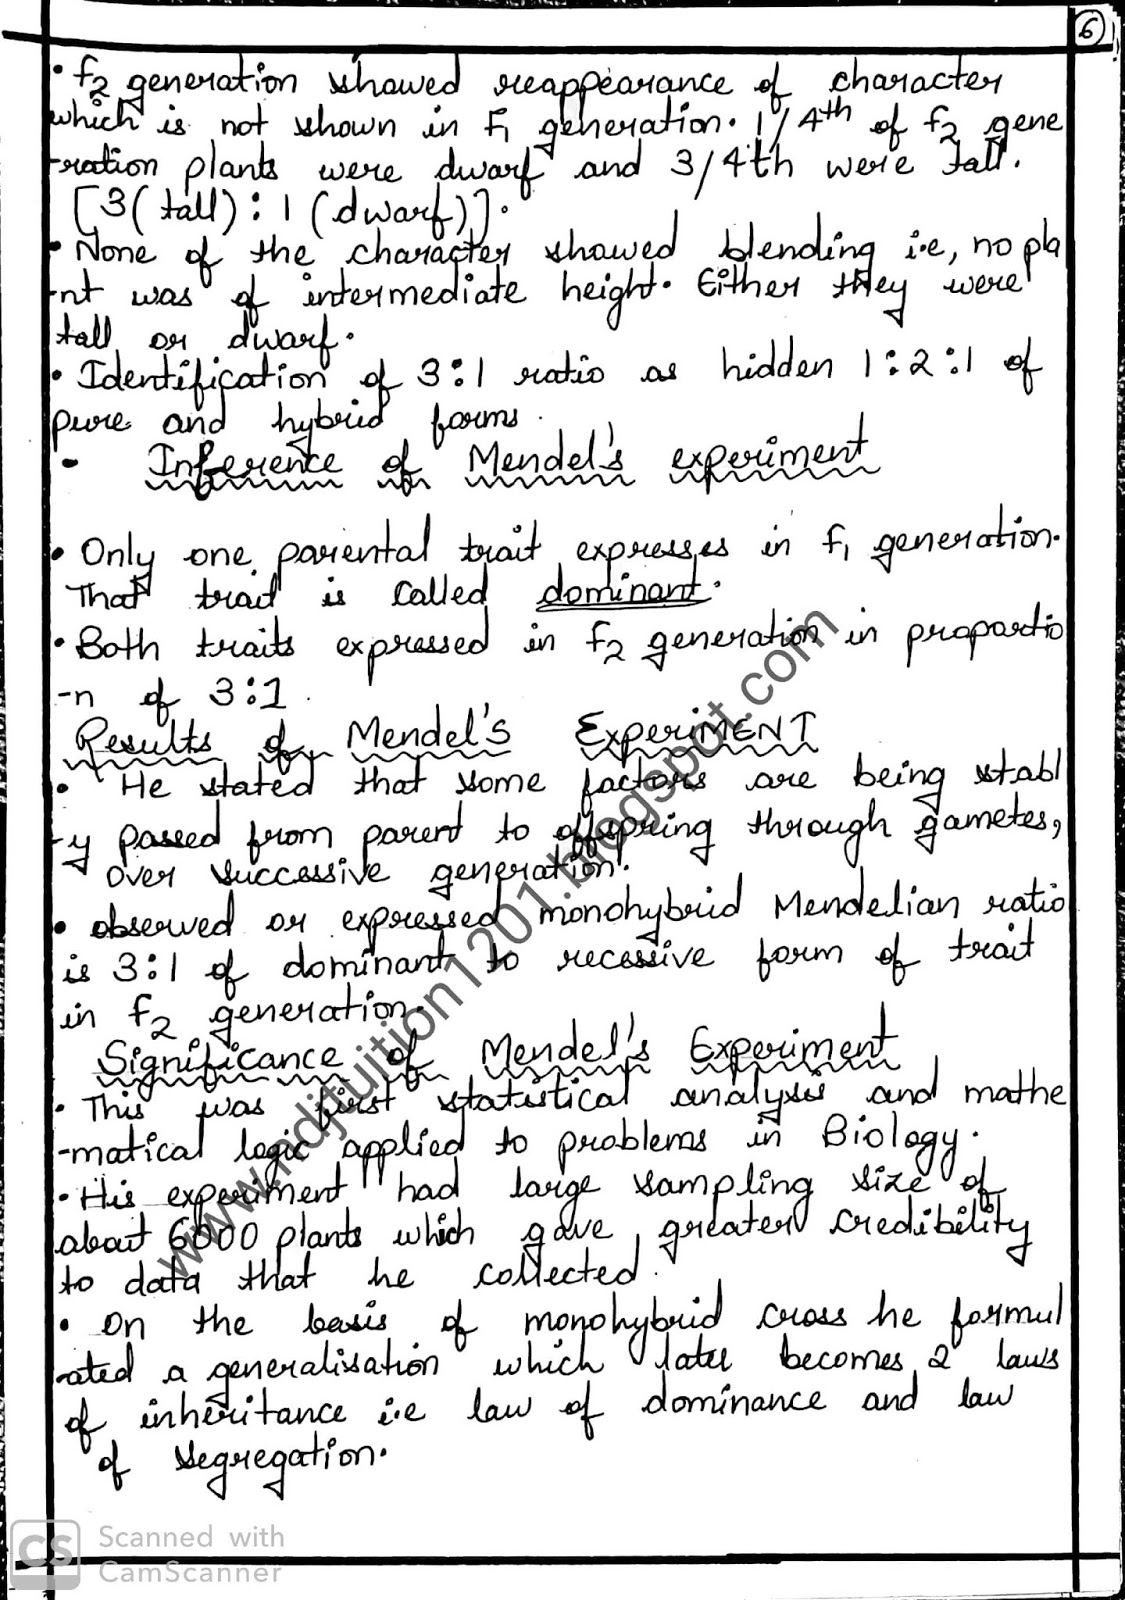 6
• F2 generation showed reappearance of character
which is not shown in F1 generation. 1/4th of F2 gene
-ration plants were dwarf and 3/4th were tall.
[3(tall) : 1 (dwarf)].
• None of the character showed blending i.e, no pla
-nt was of intermediate height. Either they were
tall or dwarf.
• Identification of 3:1 ratio as hidden 1:2:1 of
pure and hybrid forms.
- Inference of Mendel's experiment
• Only one parental trait expresses in F1 generation.
That trait is called dominant.
• Both traits expressed in F2 generation in proportio
-n of 3:1.
Results of Mendel's ExperiMENT
• He stated that some factors are being stabl
-y passed from parent to offspring through gametes,
over successive generation.
• observed or expressed monohybrid Mendelian ratio
is 3:1 of dominant to recessive form of trait
in F2 generation.
Significance of Mendel's Experiment
• This was first statistical analysis and mathe
-matical logic applied to problems in Biology.
• His experiment had large sampling size of
about 6000 plants which gave greater credibility
to data that he collected.
• On the basis of monohybrid cross he formul
-ated a generalisation which later becomes 2 laws
of inheritance i.e law of dominance and law
of segregation.
www.ndjtuition1201.blogspot.com
CS Scanned with
CamScanner